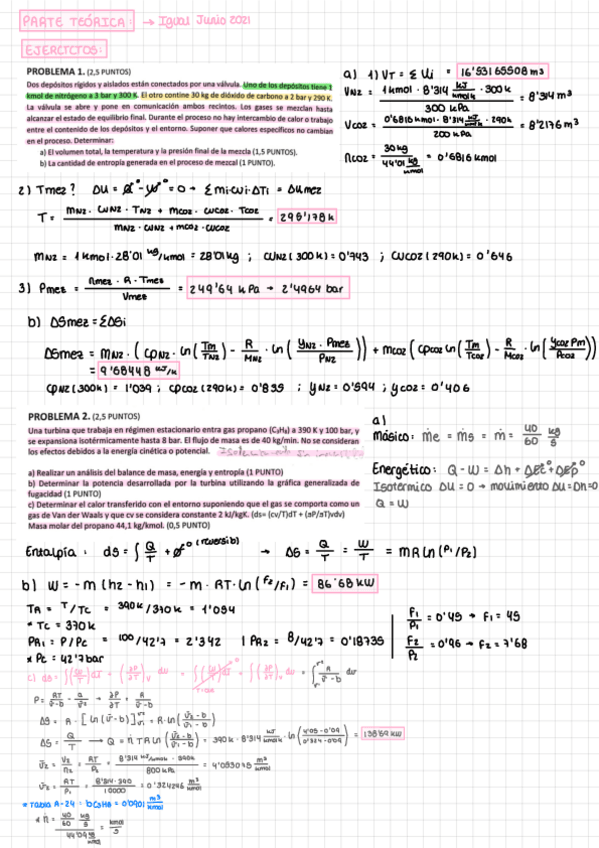 PARTE TEÓRICA: → Igual Junio 2021
EJERCICIOS:
PROBLEMA 1. (2,5 PUNTOS)
Dos depósitos rígidos y aislados están conectados por una válvula. Uno de los depósitos tiene 1
kmol de nitrógeno a 3 bar y 300 K. El otro contine 30 kg de dióxido de carbono a 2 bar y 290 K.
La válvula se abre y pone en comunicación ambos recintos. Los gases se mezclan hasta
alcanzar el estado de equilibrio final. Durante el proceso no hay intercambio de calor o trabajo
entre el contenido de los depósitos y el entorno. Suponer que calores específicos no cambian
en el proceso. Determinar:
a) El volumen total, la temperatura y la presión final de la mezcla (1,5 PUNTOS).
b) La cantidad de entropía generada en el proceso de mezcal (1 PUNTO).
a) 1) VT = Σ Vi = 16'53165508 m³
VN2 = 1 kmol · 8'314 kJ/kmol·k · 300k / 300 kPa = 8'314 m³
VCO2 = 0'6816 kmol · 8'314 kJ/kmol·k · 290k / 200 kPa = 8'2176 m³
nCO2 = 30 kg / 44'01 kg/kmol = 0'6816 kmol
2) Tmez? ΔU = Q⁰ - W⁰ = 0 → Σ mi·cvi·ΔTi = ΔUmez
T = mN2 · cvN2 · TN2 + mCO2 · cvCO2 · TCO2 / mN2 · cvN2 + mCO2 · cvCO2 = 295'178 k
mN2 = 1 kmol · 28'01 kg/kmol = 28'01 kg ; cvN2 (300k) = 0'743 ; cvCO2 (290k) = 0'646
3) Pmez = nmez · R · Tmez / Vmez = 249'64 kPa → 2'4964 bar
b) ΔSmez = ΣΔSi
ΔSmez = mN2 · (cpN2 · ln(Tm/TN2) - R/MN2 · ln(yN2 · Pmez/PN2)) + mCO2 (cpCO2 ln(Tm/TCO2) - R/MCO2 · ln(yCO2 Pm/PCO2))
= 9'68448 kJ/k
cpN2 (300k) = 1'039 ; cpCO2 (290k) = 0'835 ; yN2 = 0'594 ; yCO2 = 0'406
PROBLEMA 2. (2,5 PUNTOS)
Una turbina que trabaja en régimen estacionario entra gas propano (C₃H₈) a 390 K y 100 bar, y
se expansiona isotérmicamente hasta 8 bar. El flujo de masa es de 40 kg/min. No se consideran
los efectos debidos a la energía cinética o potencial.
a) Realizar un análisis del balance de masa, energía y entropía (1 PUNTO)
b) Determinar la potencia desarrollada por la turbina utilizando la gráfica generalizada de
fugacidad (1 PUNTO)
c) Determinar el calor transferido con el entorno suponiendo que el gas se comporta como un
gas de Van der Waals y que cv se considera constante 2 kJ/kgK. (ds= (cv/T)dT + (∂P/∂T)vdv)
Masa molar del propano 44,1 kg/kmol. (0,5 PUNTO)
a)
Másico: ṁe = ṁs = ṁ = 40/60 kg/s
Energético: Q - W = Δh + ΔEc⁰ + ΔEp⁰
Isotérmico ΔU = 0 → movimiento ΔU = Δh = 0
Q = W
Entalpía : ds = ∫ Q/T + σ⁰ (reversib) → ΔS = Q/T = W/T = mR ln (P1/P2)
b) W = -m (h2 - h1) = -m · RT · ln (f2/f1) = 86'68 kW
TR = T/Tc = 390k/370k = 1'054
* Tc = 370k
PR1 = P/Pc = 100/42'7 = 2'342 | PR2 = 8/42'7 = 0'18735
* Pc = 42'7 bar
f1/P1 = 0'45 → f1 = 45
f2/P2 = 0'96 → f2 = 7'68
c) ds = ∫(cv/T) dT + (∂P/∂T)v dv = ∫(cv/T) dT⁰ + ∫(∂P/∂T)v dv = ∫ R/v̄-b dv
T=cte
P = RT/v̄-b - a/v̄² → ∂P/∂T = R/v̄-b
ΔS = R · [ln (v̄-b)] = R · ln (v̄2-b/v̄1-b)
ΔS = Q/T → Q = ṅ T R ln (v̄2-b/v̄1-b) = 390k · 8'314 kJ/kmol·k · ln (4'05-0'09/0'324-0'09) = 138'69 kW
v̄2 = V2/n2 = RT/P2 = 8'314 kJ/kmol·k · 390k / 800 kPa = 4'053075 m³/kmol
v̄1 = RT/P1 = 8'314 · 390 / 10000 = 0'324246 m³/kmol
* Tabla A-24 : b C3H8 = 0'0901 m³/kmol
* ṅ = 40/60 kg/s / 44'09 kg/kmol = kmol/s